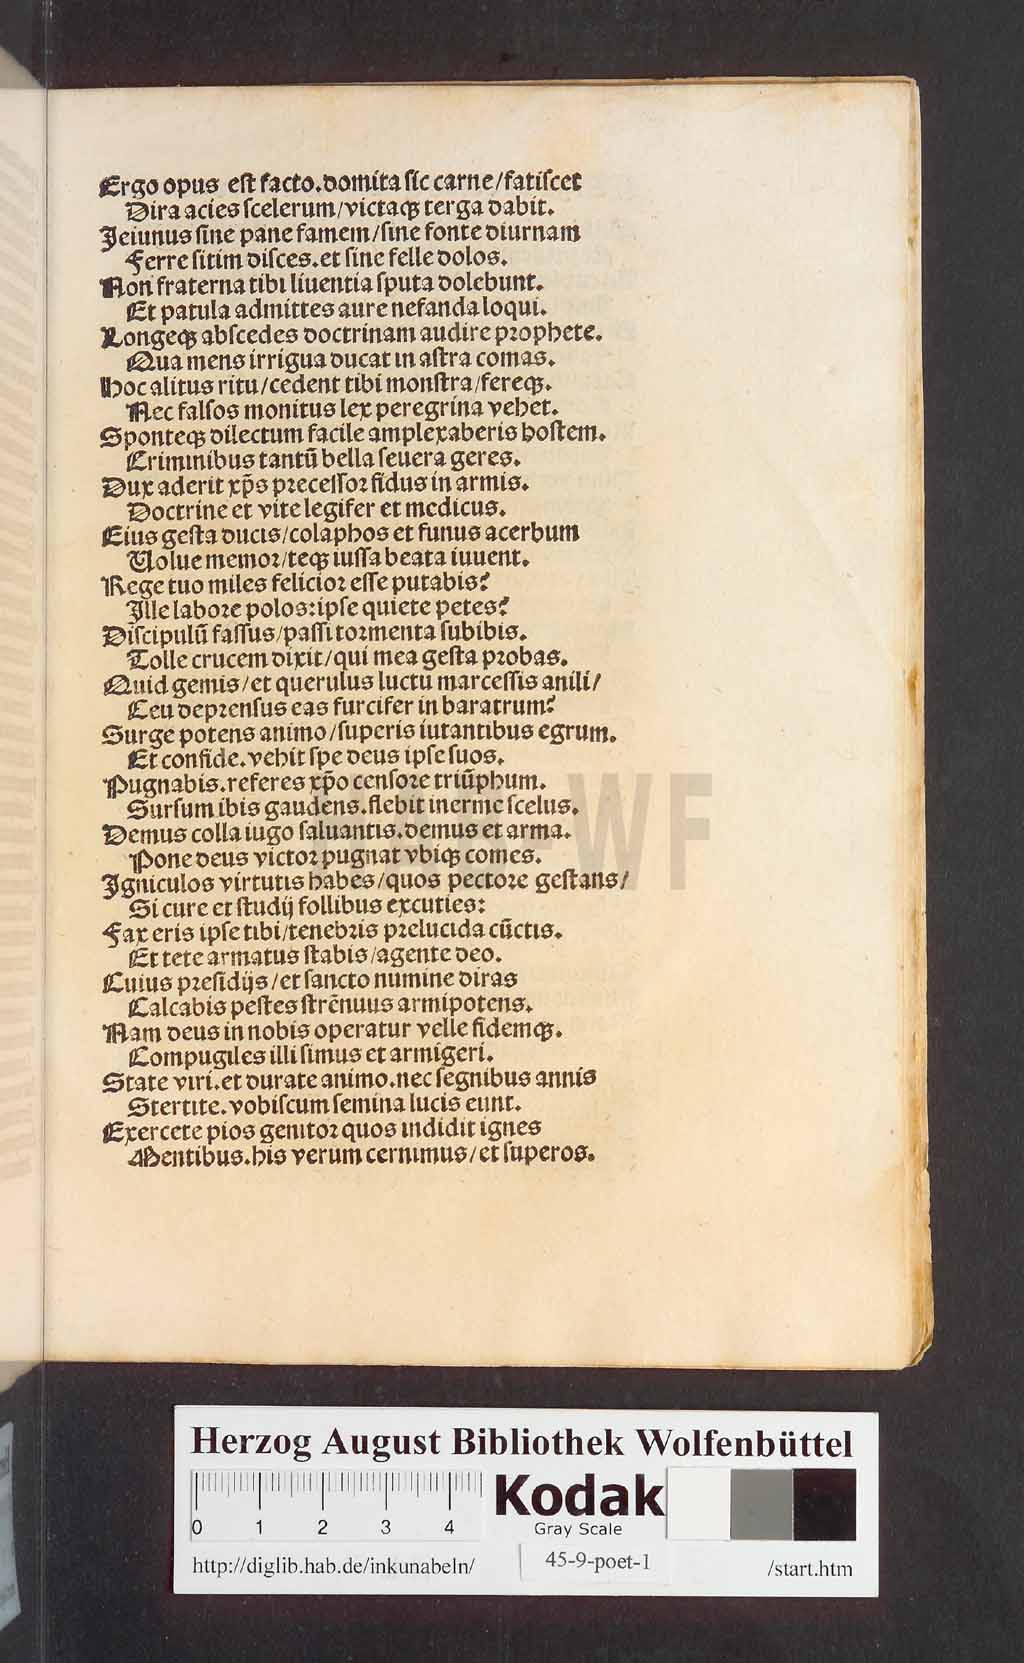 Ergo opus eſt facto.domita ſic carne/fatiſcet
Dira acies ſcelerum/victaqꝫ terga dabit.
Jeiunus ſine pane famem/ſine fonte diurnam
Ferre ſitim diſces.et ſine felle dolos.
Non fraterna tibi liuentia ſputa dolebunt.
Et patula admittes aure nefanda loqui.
Longeqꝫ abſcedes doctrinam audire prophete.
Qua mens irrigua ducat in aſtra comas.
Hoc alitus ritu/cedent tibi monſtra/fereqꝫ.
Nec falſos monitus lex peregrina vehet.
Sponteqꝫ dilectum facile amplexaberis hoſtem.
Criminibus tantū bella ſeuera geres.
Dux aderit xp̄s preceſſor fidus in armis.
Doctrine et vite legifer et medicus.
Eius geſta ducis/colaphos et funus acerbum
Uolue memor/teqꝫ iuſſa beata iuuent.
Rege tuo miles felicior eſſe putabis?
Ille labore polos:ipſe quiete petes?
Diſcipulū faſſus/paſſi tormenta ſubibis.
Tolle crucem dixit/qui mea geſta probas.
Quid gemis/et querulus luctu marceſſis anili/
Ceu deprenſus eas furcifer in baratrum?
Surge potens animo/ſuperis iutantibus egrum.
Et confide.vehit ſpe deus ipſe ſuos.
Pugnabis.referes xp̄o cenſore triūphum.
Surſum ibis gaudens.flebit inerme ſcelus.
Demus colla iugo ſaluantis.demus et arma.
Pone deus victor pugnat vbiqꝫ comes.
Igniculos virtutis habes/quos pectore geſtans/
Si cure et ſtudij follibus excuties:
Fax eris ipſe tibi/tenebris prelucida cūctis.
Et tete armatus ſtabis/agente deo.
Cuius preſidijs/et ſancto numine diras
Calcabis peſtes ſtrēnuus armipotens.
Nam deus in nobis operatur velle fidemqꝫ.
Compugiles illi ſimus et armigeri.
State viri.et durate animo.nec ſegnibus annis
Stertite.vobiſcum ſemina lucis eunt.
Exercete pios genitor quos indidit ignes
Mentibus.his verum cernimus/et ſuperos.
HAB-WF
Herzog August Bibliothek Wolfenbüttel
0 1 2 3 4
Kodak
Gray Scale
http://diglib.hab.de/inkunabeln/ 45-9-poet-1 /start.htm